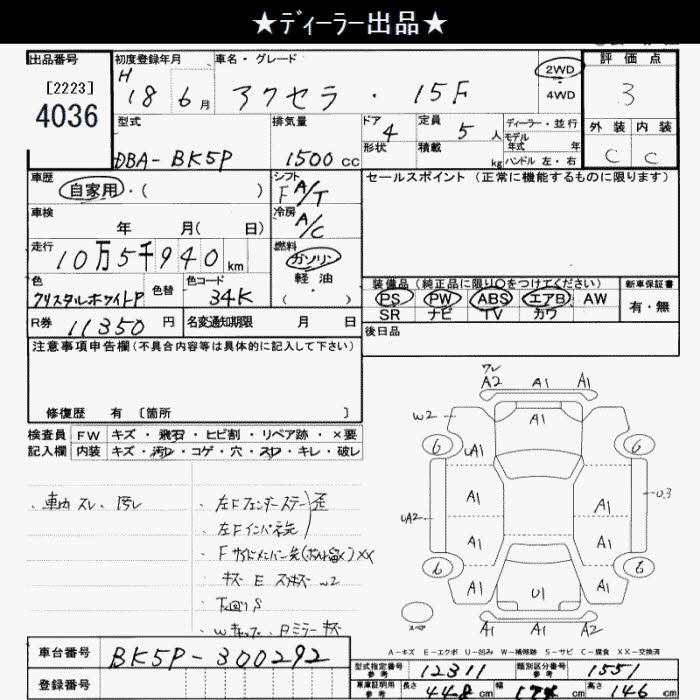 ★ディーラー出品★
出品番号
[2223]
4036
初度登録年月
H
18 6 月
車名・グレード
アクセラ ・ 15F
2WD
4WD
評価点
3
外装 内装
C C
型式
DBA-BK5P
排気量
1500 cc
ドア
4
形状
定員
5 人
積載
kg
ディーラー・並行
モデル
年式 年
ハンドル 左・右
車歴
自家用・( )
シフト
F A/T
セールスポイント(正常に機能するものに限ります)
車検
年 月( 日)
冷房
A/C
走行
10万5千940 km
燃料
ガソリン
軽油
( )
色
クリスタルホワイトP
色替
色コード
34K
装備品(純正品に限り○をつけてください)
PS PW ABS エアB AW
SR ナビ TV カワ
新車保証書
有・無
R券 11350 円
名変通知期限 月 日
後日品
注意事項申告欄(不具合内容等は具体的に記入して下さい)
修復歴 有 〔箇所 〕
検査員
記入欄
FW キズ・飛石・ヒビ割・リペア跡・×要
内装 キズ・汚レ・コゲ・穴・スレ・キレ・破レ
・車内 スレ、汚レ
・左Fフェンダーステー 歪
・左Fインパネ先
・Fサイドメンバー先
キズ E W2
下回りS
ワレ
A2 A1 A1
W2
A1
6 6
UA1
A1 A1
UA2
U3
A1 A1
6 6
A1 A1
U1
スペア
A1 A1 A2
A-キズ E-エクボ U-凹み W-補修跡 S-サビ C-腐食 XX-交換済
車台番号 BK5P-300292
登録番号
型式指定番号
参考
12311
類別区分番号
参考
1551
車庫証明用
参考
長さ 448 cm 幅 174 cm 高さ 146 cm